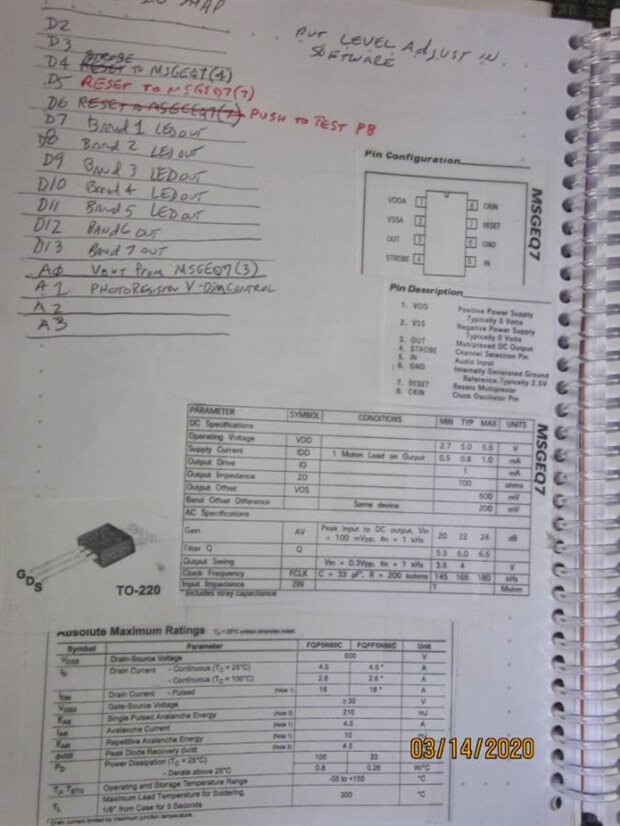 IO MAP
D2
D3
D4 STROBE RESET TO MSGEQ7(4)
D5 RESET TO MSGEQ7(7)
D6 RESET TO MSGEQ7(7) PUSH TO TEST PB
D7 Band 1 LED OUT
D8 Band 2 LED OUT
D9 Band 3 LED OUT
D10 Band 4 LED OUT
D11 Band 5 LED OUT
D12 BAND 6 OUT
D13 BAND 7 OUT
A0 VOUT From MSGEQ7(3)
A1 PHOTORESISTOR V-DIM CONTROL
A2
A3
PUT LEVEL ADJUST IN
SOFTWARE
Pin Configuration
VDDA 1 8 CKIN
VSSA 2 7 RESET
OUT 3 6 GND
STROBE 4 5 IN
MSGEQ7
Pin Description
1. VDD Positive Power Supply
Typically 5 Volts
2. VSS Negative Power Supply
Typically 0 Volts
3. OUT Multiplexed DC Output
4. STROBE Channel Selection Pin
5. IN Audio Input
6. GND Internally Generated Ground
Reference, Typically 2.5V
7. RESET Resets Multiplexor
8. CKIN Clock Oscillator Pin
PARAMETER SYMBOL CONDITIONS MIN TYP MAX UNITS
DC Specifications
Operating Voltage VDD 2.7 5.0 5.5 V
Supply Current IDD 1 Mohm Load on Output 0.5 0.8 1.0 mA
Output Drive IO 1 mA
Output Impedance ZO 700 ohms
Output Offset VOS 600 mV
Band Offset Difference Same device 200 mV
AC Specifications
Gain AV Peak input to DC output, Vin
= 100 mVpp, fin = 1 kHz 20 22 24 dB
Filter Q Q 5.5 6.0 6.5
Output Swing Vin = 0.3Vpp, fin = 1 kHz 3.5 4 V
Clock Frequency FCLK C = 33 pF*, R = 200 kohms 145 165 180 kHz
Input Impedance ZIN 1 Mohm
*Includes stray capacitance
MSGEQ7
G D S
TO-220
Absolute Maximum Ratings TC = 25°C unless otherwise noted
Symbol Parameter FQP5N60C FQPF5N60C Unit
VDSS Drain-Source Voltage 600 V
ID Drain Current - Continuous (TC = 25°C) 4.5 4.5 * A
- Continuous (TC = 100°C) 2.6 2.6 * A
IDM Drain Current - Pulsed (Note 1) 18 18 * A
VGSS Gate-Source Voltage ± 30 V
EAS Single Pulsed Avalanche Energy (Note 2) 210 mJ
IAR Avalanche Current (Note 1) 4.5 A
EAR Repetitive Avalanche Energy (Note 1) 10
dv/dt Peak Diode Recovery dv/dt (Note 3) 4.5
PD Power Dissipation (TC = 25°C) 100 33
- Derate above 25°C 0.8 0.26 W/°C
TJ, TSTG Operating and Storage Temperature Range -55 to +150 °C
TL Maximum Lead Temperature for Soldering,
1/8" from Case for 5 Seconds 300 °C
* Drain current limited by maximum junction temperature.
03/14/2020